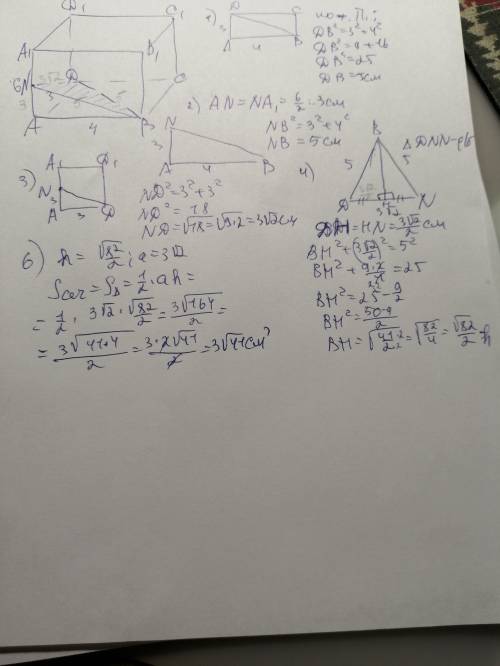 D₁ C₁
A₁ B₁
6 N 3√2 D C
3 3 5
A 4 B
1) D C
3
A 4 B
по т. П.:
DB² = 3² + 4²
DB² = 9 + 16
DB² = 25
DB = 5см
2) AN = NA₁ = 6/2 = 3см
N
3
A 4 B
NB² = 3² + 4²
NB = 5 см
3) A₁ D₁
N
3
A 3 D
ND² = 3² + 3²
ND² = 18
ND = √18 = √9·2 = 3√2 см
4) B
5 5
D H N
3√2
DH = HN = 3√2/2 см
BH² + (3√2/2)² = 5²
BH² + 9·2/4 = 25
BH² = 25 - 9/2
BH² = 50-9/2
BH = √41·2/2·2 = √82/4 = √82/2 h
6) h = √82/2; a = 3√2
Sсеч = SΔ = 1/2 · ah =
= 1/2 · 3√2 · √82/2 = 3√164/2 =
= 3√41·4/2 = 3·2√41/2 = 3√41 см²